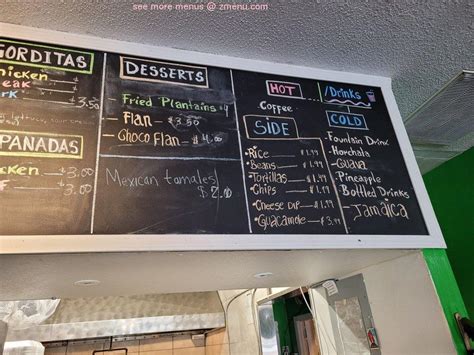 see more menus @ zmenu.com
GORDITAS
Chicken
Steak
Pork
$3.50
EMPANADAS
Chicken — $3.00
$3.00
DESSERTS
Fried Plantains $4
Flan — $3.50
Choco Flan — $4.00
Mexican tamales
HOT /Drinks
Coffee
SIDE
•Rice — $1.99
•Beans — $1.99
•Tortillas — $1.99
•Chips — $1.99
•Cheese Dip — $1.99
•Guacamole — $3.99
COLD
Fountain Drink
Horchata
Guava
Pineapple
Bottled Drinks
Jamaica